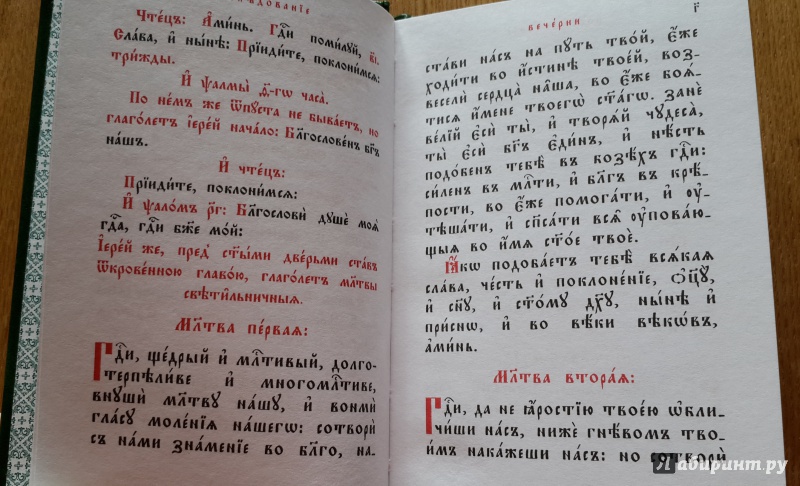 Чте́цъ: А҆ми́нь. Гдⷭ҇и поми́лꙋй, в҃і.
Сла́ва, и҆ ны́нѣ: Прїиди́те, поклони́мсѧ:
три́жды.
И҆ ѱалмы̀ а҃-гѡ часа̀.
По не́мъ же ѿпꙋ́ста не быва́етъ, но
глаго́летъ і҆ере́й нача́ло: Блгⷭ҇ове́нъ бг҃ъ
на́шъ.
И҆ чте́цъ:
Прїиди́те, поклони́мсѧ:
И҆ ѱало́мъ рг҃: Блгⷭ҇овѝ дꙋшѐ моѧ̀
гдⷭ҇а, гдⷭ҇и бж҃е мо́й:
І҆ере́й же, пред̾ ст҃ы́ми две́рьми ста́въ
ѿкрове́нною главо́ю, глаго́летъ мл҃твы
свѣти́льничныѧ.
Мл҃тва пе́рваѧ:
Гдⷭ҇и, ще́дрый и҆ млⷭ҇тивый, долго-
терпѣли́ве и҆ многомлⷭ҇тиве,
внꙋшѝ мл҃твꙋ на́шꙋ, и҆ вонмѝ
гла́сꙋ моле́нїѧ на́шегѡ: сотворѝ
съ на́ми зна́менїе во бл҃го, на-
вече́рни
г҃
ста́ви на́съ на пꙋ́ть тво́й, є҆́же
ходи́ти во и҆́стинѣ твое́й, воз-
веселѝ сердца̀ на̑ша, во є҆́же боѧ́-
тисѧ и҆́мене твоегѡ̀ ст҃а́гѡ. Занѐ
ве́лїй є҆сѝ ты̀, и҆ творѧ́й чꙋдеса̀,
ты̀ є҆сѝ бг҃ъ є҆ди́нъ, и҆ нѣ́сть
подо́бенъ тебѣ̀ въ бозѣ́хъ гдⷭ҇и:
си́ленъ въ млⷭ҇ти, и҆ бл҃гъ въ крѣ́-
пости, во є҆́же помога́ти, и҆ ᲂу҆-
тѣша́ти, и҆ сп҃са́ти всѧ̑ ᲂу҆пова́ю-
щыѧ во и҆́мѧ ст҃о́е твоѐ.
Ꙗ҆́кѡ подоба́етъ тебѣ̀ всѧ́каѧ
сла́ва, че́сть и҆ поклоне́нїе, ѻ҆ц҃ꙋ̀,
и҆ сн҃ꙋ, и҆ ст҃о́мꙋ дх҃ꙋ, ны́нѣ и҆
при́снѡ, и҆ во вѣ́ки вѣкѡ́въ,
а҆ми́нь.
Мл҃тва втора́ѧ:
Гдⷭ҇и, да не ꙗ҆́ростїю твое́ю ѡ҆бли-
чи́ши на́съ, нижѐ гнѣ́вомъ тво-
и́мъ нака́жеши на́съ: но сотворѝ
Лабиринт.ру